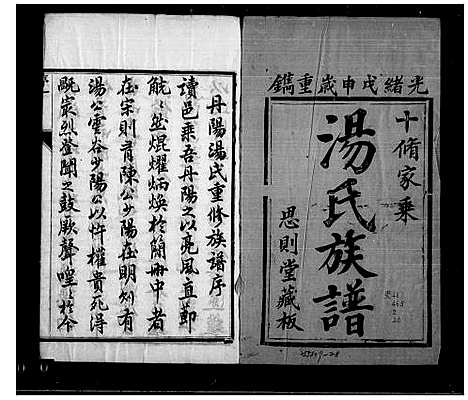 光緒戊申歲重鐫
十脩家乘
湯氏族譜
思則堂藏板
丹陽湯氏重修族譜序
讀邑乘吾丹陽之以亮風直節
觥觥然焜燿炳煥於簡冊中者
在宋則有陳公少陽在明則有
湯公雲谷少陽公以忤權貴死得
厥崇烈登聞之鼓厥聲喤喤於今